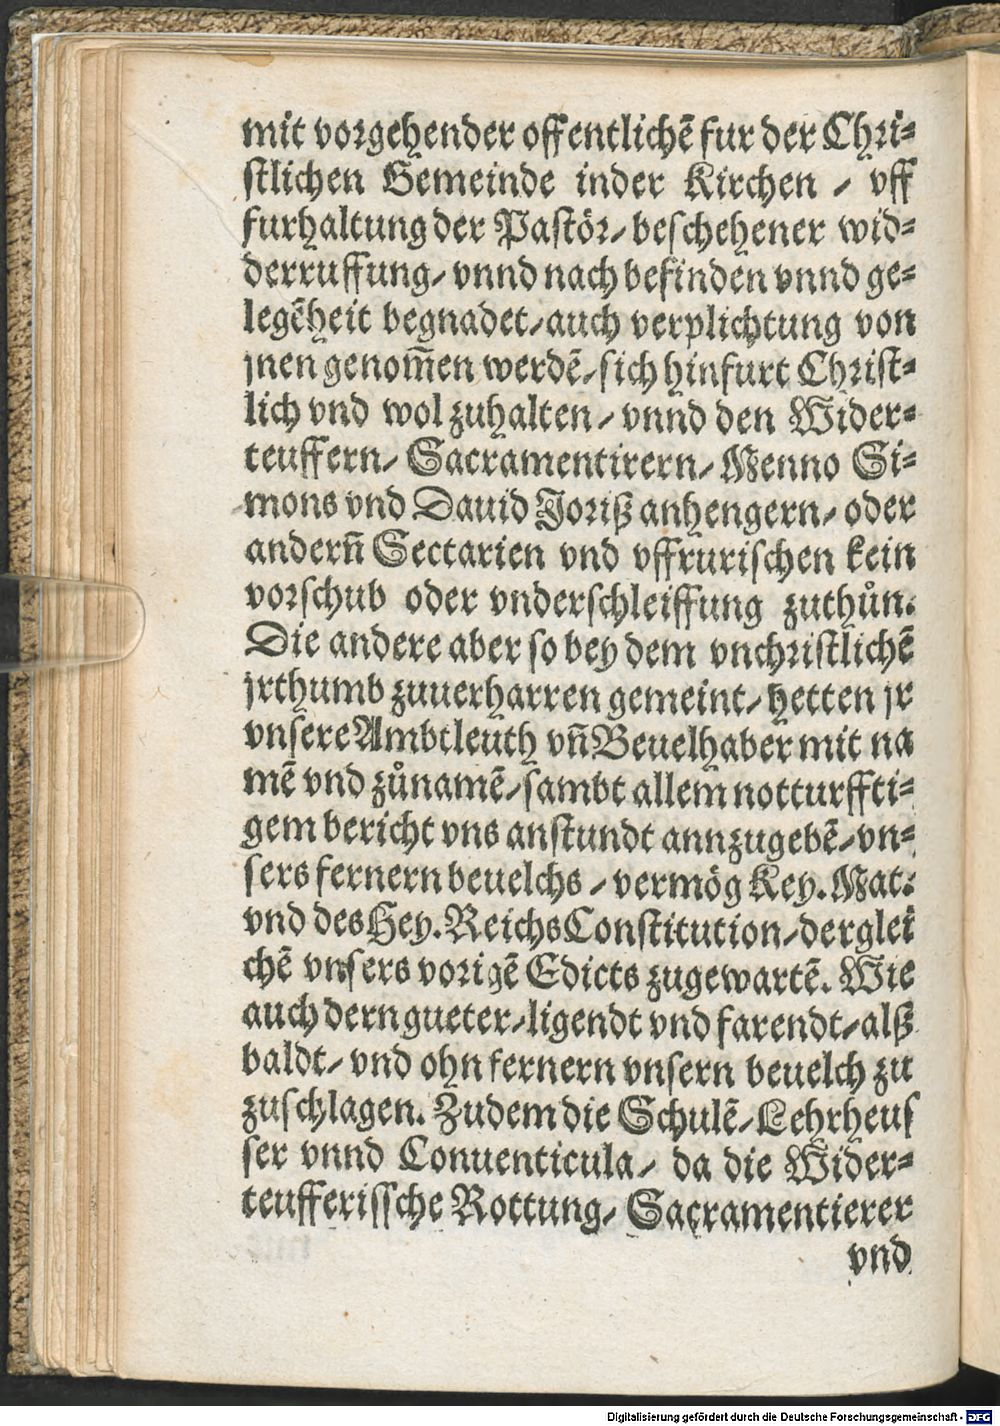 mit vorgehender offentlichē fur der Chri⸗
stlichen Gemeinde inder Kirchen / vff
furhaltung der Pastör / beschehener wid⸗
derruffung / vnnd nach befinden vnnd ge⸗
legēheit begnadet / auch verplichtung von
jnen genom̄en werdē / sich hinfurt Christ⸗
lich vnd wol zuhalten / vnnd den Wider⸗
teuffern / Sacramentirern / Menno Si⸗
mons vnd Dauid Joriß anhengern / oder
andern̄ Sectarien vnd vffrurischen kein
vorschub oder vnderschleiffung zuthůn.
Die andere aber so bey dem vnchristlichē
jrthumb zuuerharren gemeint / hetten jr
vnsere Ambtleuth vn̄ Beuelhaber mit na
mē vnd zůnamē / sambt allem notturffti⸗
gem bericht vns anstundt annzugebē / vn⸗
sers fernern beuelchs / vermög Key. Mat:
vnd des Hey. Reichs Constitution / derglei
chē vnsers vorigē Edicts zugewartē. Wie
auch dern gueter / ligendt vnd farendt / alß
baldt / vnd ohn fernern vnsern beuelch zu
zuschlagen. Zudem die Schulē / Lehrheus
ser vnnd Conuenticula / da die Wider⸗
teufferissche Rottung / Sacramentierer
vnd
Digitalisierung gefördert durch die Deutsche Forschungsgemeinschaft - DFG